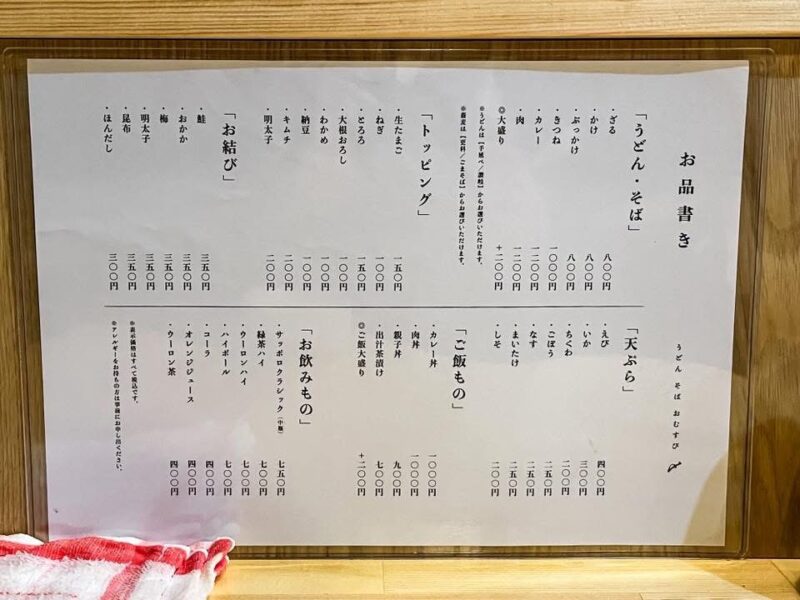 お品書き
うどん そば おむすび
「うどん・そば」
・ざる 八〇〇円
・かけ 八〇〇円
・ぶっかけ 八〇〇円
・きつね 一〇〇〇円
・カレー 一二〇〇円
・肉 一二〇〇円
◎大盛り +二〇〇円
※うどんは【手延べ/讃岐】からお選びいただけます。
※蕎麦は【更科/ごまそば】からお選びいただけます。
「トッピング」
・生たまご 一五〇円
・ねぎ 一〇〇円
・とろろ 一五〇円
・大根おろし 一〇〇円
・わかめ 一〇〇円
・納豆 一〇〇円
・キムチ 二〇〇円
・明太子 二〇〇円
「お結び」
・鮭 三五〇円
・おかか 三五〇円
・梅 三五〇円
・明太子 三五〇円
・昆布 三五〇円
・ほんだし 三〇〇円
「天ぷら」
・えび 四〇〇円
・いか 三〇〇円
・ちくわ 二〇〇円
・ごぼう 二五〇円
・なす 二五〇円
・まいたけ 二五〇円
・しそ 二〇〇円
「ご飯もの」
・カレー丼 一〇〇〇円
・肉丼 一〇〇〇円
・親子丼 九〇〇円
・出汁茶漬け 七〇〇円
◎ご飯大盛り +二〇〇円
「お飲みもの」
・サッポロクラシック(中瓶) 七五〇円
・緑茶ハイ 七〇〇円
・ウーロンハイ 七〇〇円
・ハイボール 七〇〇円
・コーラ 四〇〇円
・オレンジジュース 四〇〇円
・ウーロン茶 四〇〇円
※表示価格はすべて税込です。
※アレルギーをお持ちの方は事前にお申し出ください。